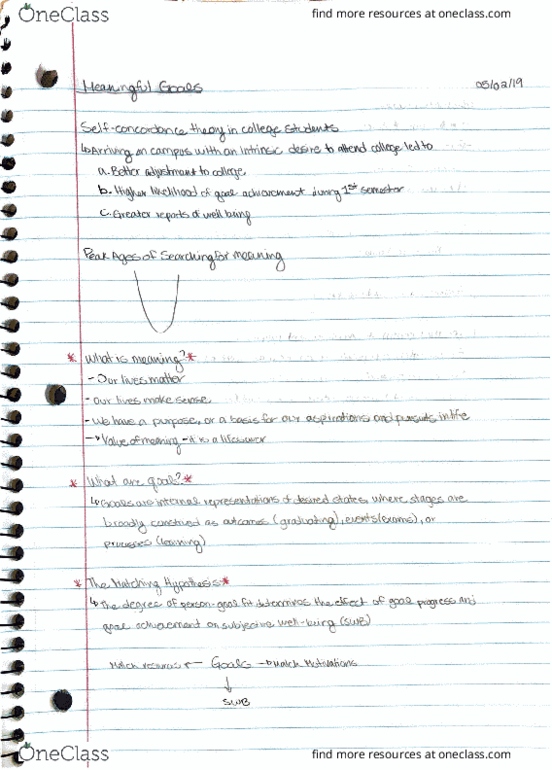 OneClass
find more resources at oneclass.com
Meaningful Goals
03/02/19
Self-concordance theory in college students
↳Arriving on campus with an intrinsic desire to attend college led to
a. Better adjustment to college
b. Higher likelihood of goal achievement during 1st semester
c. Greater reports of well being
Peak Ages of Searching for meaning
* What is meaning? *
- Our lives matter
- Our lives make sense
- We have a purpose, or a basis for our aspirations and pursuits in life
→ Value of meaning - it is a
* What are goal? *
↳ Goals are internal representations of desired states, where stages are
broadly construed as outcomes (graduating), events (exams), or
processes (learning)
* The Matching Hypothesis *
↳ The degree of person-goal fit determines the effect of goal progress and
goal achievement on subjective well-being (SWB)
Match resources ← Goals → Match Motivations
↓
SWB
OneClass
find more resources at oneclass.com